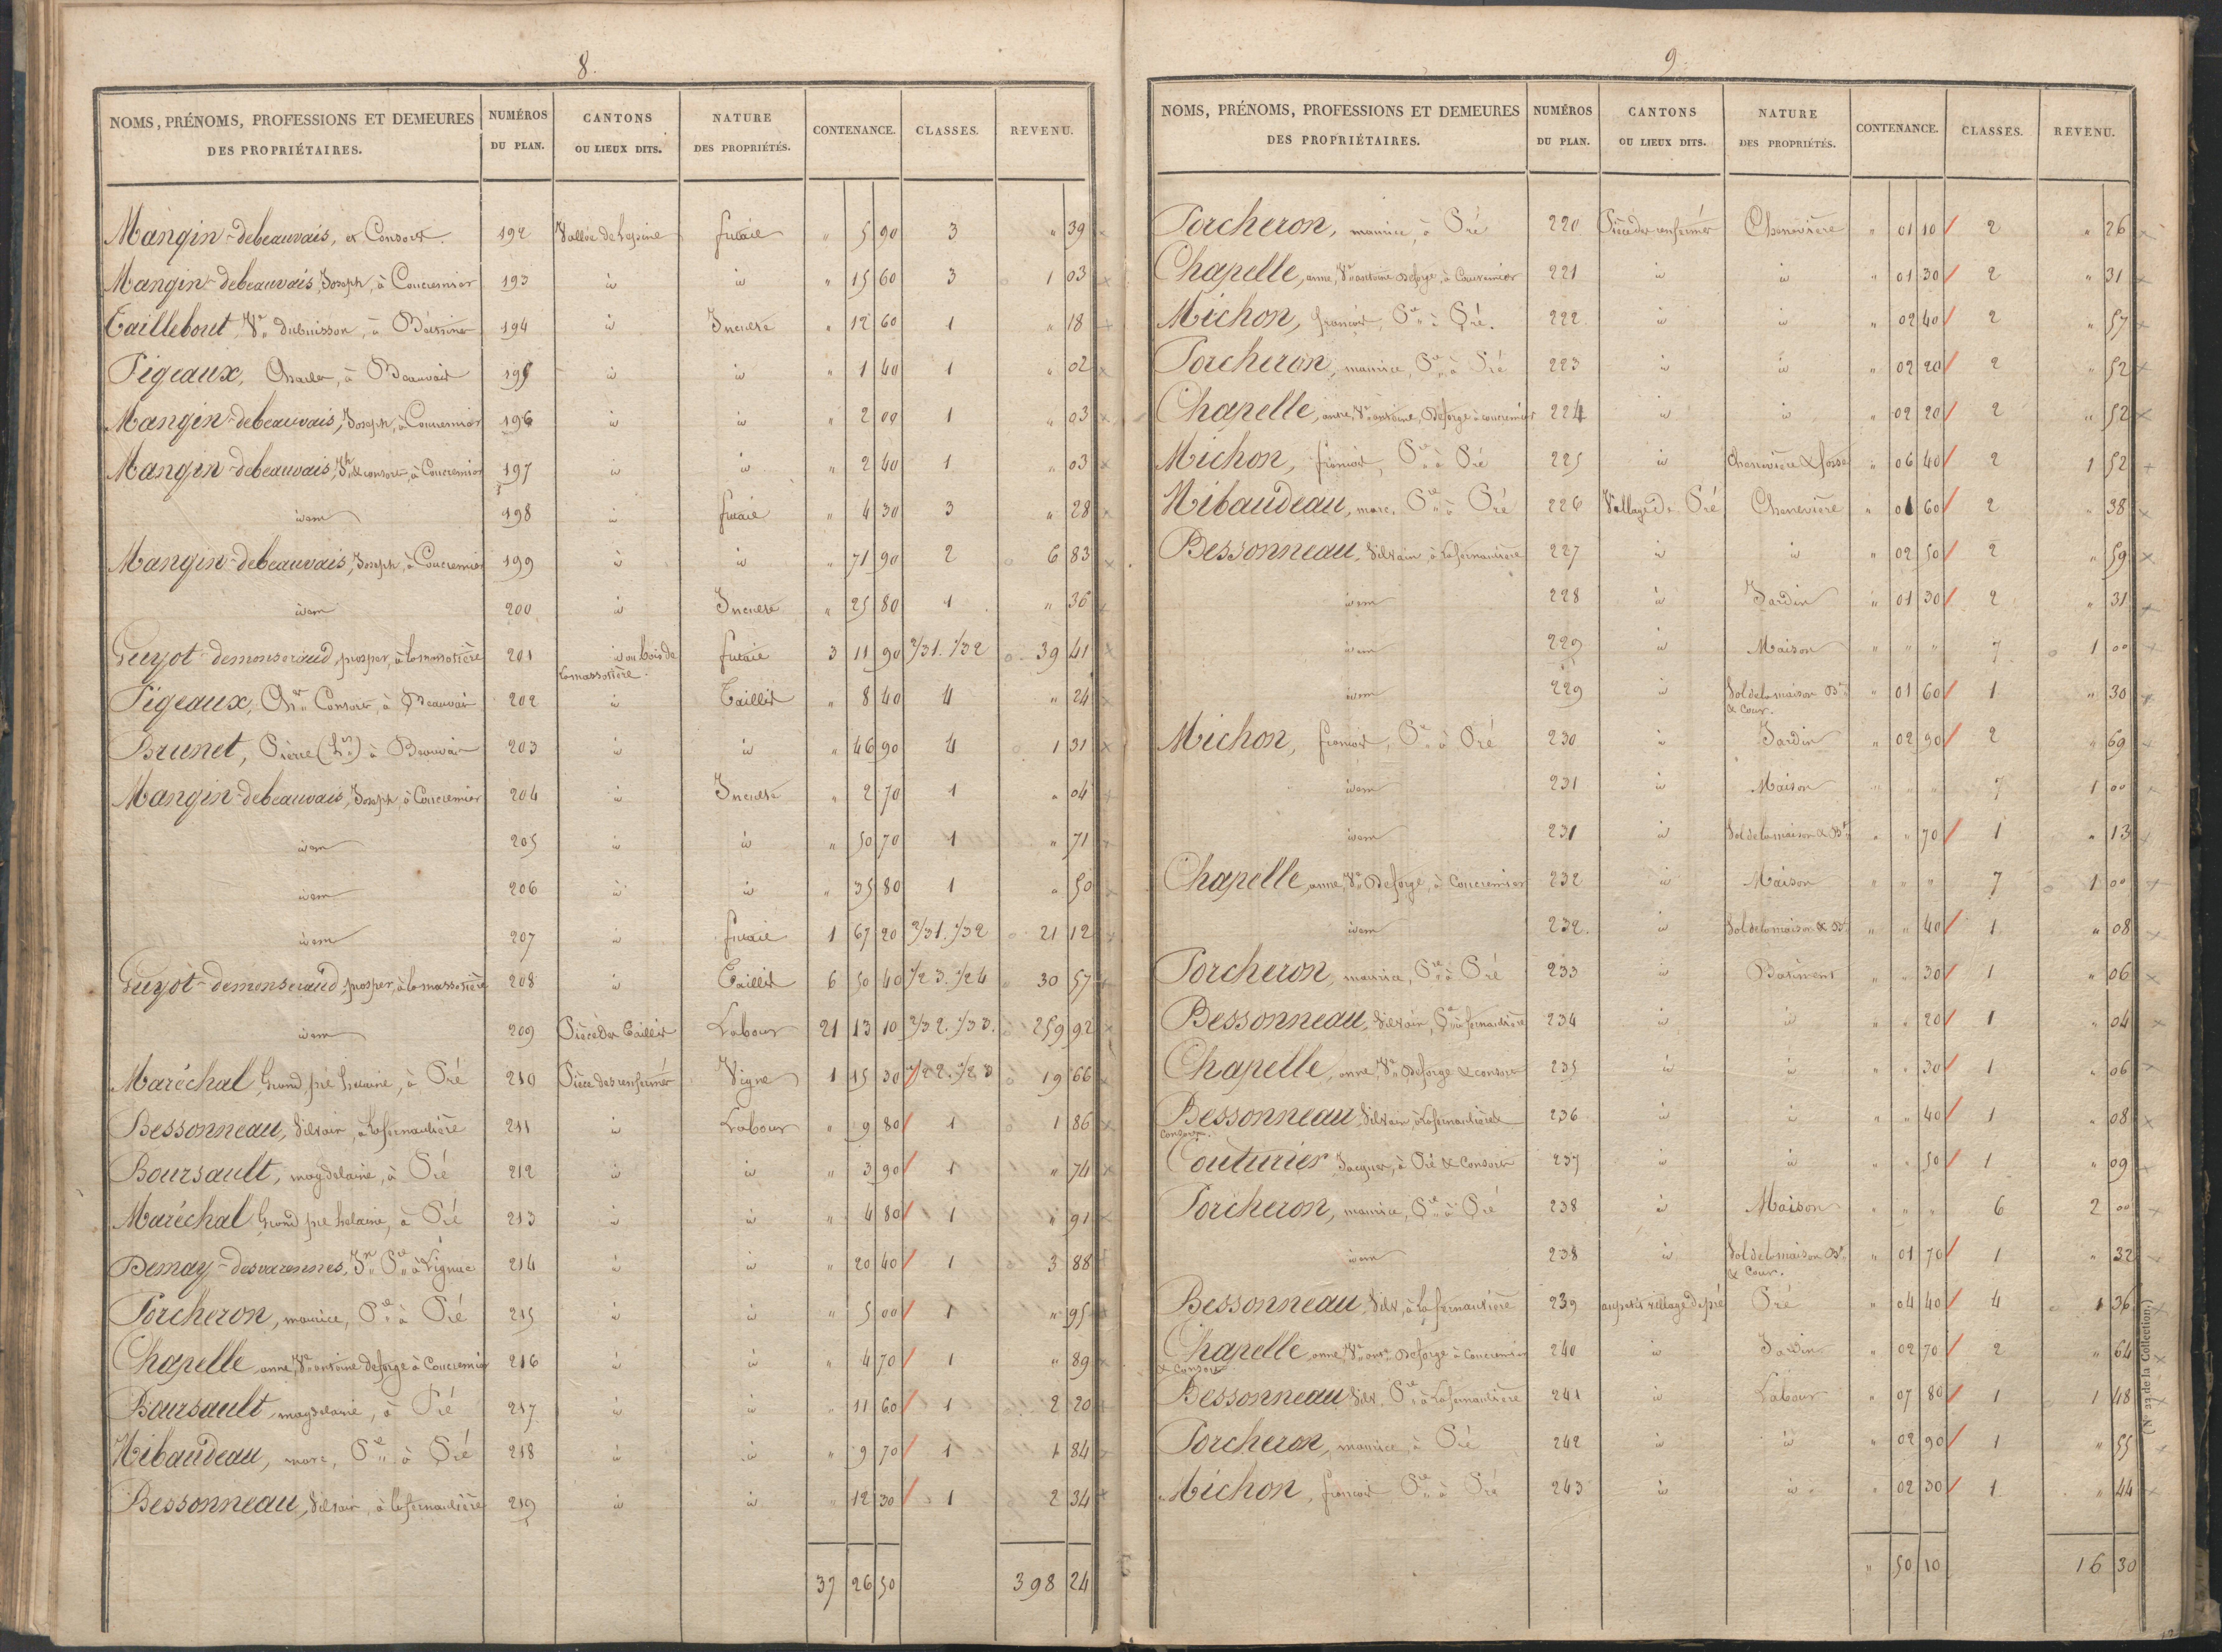 8.
NOMS, PRÉNOMS, PROFESSIONS ET DEMEURES DES PROPRIÉTAIRES. NUMÉROS DU PLAN. CANTONS OU LIEUX DITS. NATURE DES PROPRIÉTÉS. CONTENANCE. CLASSES. REVENU.
Mangin-debeauvais, et Consort. 192 Vallée de Lepine futaie " 5 90 3 " 39
Mangin-debeauvais, Joseph, à Concremier 193 id id " 15 60 3 1 03
Taillebout, Ve dubuisson, à 194 id Inculte " 12 60 1 " 18
Pigeaux, Charles, à Beauvais 195 id id " 1 40 1 " 02
Mangin-debeauvais, Joseph, à Concremier 196 id id " 2 00 1 " 03
Mangin-debeauvais, Jh & consort, à Concremier 197 id id " 2 40 1 " 03
idem 198 id futaie " 4 30 3 " 28
Mangin-debeauvais, Joseph, à Concremier 199 id id " 71 90 2 6 83
idem 200 id Inculte " 25 80 1 " 36
Guyot-demonseraud, prosper, à la massotière 201 id ou bois de Lamassotière futaie 3 11 90 2/31. 1/32 39 41
Pigeaux, Ch. Consort, à Beauvais 202 id Taillis " 8 40 4 " 24
Brunet, Pierre (hers) à Beauvais 203 id id " 46 90 4 1 31
Mangin-debeauvais, Joseph, à Concremier 204 id Inculte " 2 70 1 " 04
idem 205 id id " 50 70 1 " 71
idem 206 id id " 35 80 1 " 50
idem 207 id futaie 1 67 20 2/31. 1/32 21 12
Guyot-demonseraud, prosper, à la massotière 208 id Taillis 6 50 40 1/2 3. 1/2 4 30 57
idem 209 Pièce des Taillis Labour 21 13 10 2/3 2. 1/3 3. 259 92
Maréchal Grand pré helaine, à Pré 210 Pièce des renfermés Vigne 1 15 30 1/2 2. 1/2 3 19 66
Bessonneau, Silvain, à Lafernaulière 211 id Labour " 9 80 1 1 86
Boursault, magdelaine, à Pré 212 id id " 3 90 1 " 74
Maréchal Grand pré helaine, à Pré 213 id id " 4 80 1 " 91
Demay-desvarennes, Jn Pre à Lignac 214 id id " 20 40 1 3 88
Porcheron, maurice, Pre à Pré 215 id id " 5 00 1 " 95
Chapelle anne, Ve antoine deforge à Concremier 216 id id " 4 70 1 " 89
Boursault, magdelaine, à Pré 217 id id " 11 60 1 2 20
Nibaudeau, marc, Pre à Pré 218 id id " 9 70 1 1 84
Bessonneau, Silvain, à lafernaulière 219 id id " 12 30 1 2 34
37 26 50 398 24
9.
NOMS, PRÉNOMS, PROFESSIONS ET DEMEURES DES PROPRIÉTAIRES. NUMÉROS DU PLAN. CANTONS OU LIEUX DITS. NATURE DES PROPRIÉTÉS. CONTENANCE. CLASSES. REVENU.
Porcheron, maurice, à Pré 220 Pièce des renfermés Chenevière " 01 10 2 " 26
Chapelle, anne, Ve antoine Deforge, à Concremier 221 id id " 01 30 2 " 31
Michon, françois, Pre à Pré. 222 id id " 02 40 2 " 57
Porcheron, maurice, Pre à Pré 223 id id " 02 20 2 " 52
Chapelle, anne, Ve antoine, Deforge à concremier 224 id id " 02 20 2 " 52
Michon, françois, Pre à Pré 225 id Chenevière & fosse " 06 40 2 1 52
Nibaudeau, marc, Pre à Pré 226 Village de Pré Chenevière " 01 60 2 " 38
Bessonneau, Silvain à Lafernaulière 227 id id " 02 50 2 " 59
idem 228 id Jardin " 01 30 2 " 31
idem 229 id Maison " " " 7 1 00
idem 229 id Sol de la maison Bt & cour. " 01 60 1 " 30
Michon, françois, Pre à Pré 230 id Jardin " 02 90 2 " 69
idem 231 id Maison " " " 7 1 00
idem 231 id Sol de la maison & Bt " " 70 1 " 13
Chapelle, anne, Ve Deforge, à Concremier 232 id Maison " " " 7 1 00
idem 232. id Sol de la maison & Bt " " 40 1 " 08
Porcheron, maurice, Pre à Pré 233 id Batiment " " 30 1 " 06
Bessonneau, Silvain, Pre à lafernaulière 234 id id " " 20 1 " 04
Chapelle, anne, Ve Deforge & consort 235 id id " " 30 1 " 06
Bessonneau, Silvain à Lafernaulière & Consort. 236 id id " " 40 1 " 08
Couturier Jacques, à Pré & Consort 237 id id " " 50 1 " 09
Porcheron, maurice, Pre à Pré 238 id Maison " " " 6 2 00
idem 238 id Sol de la maison Bt & Cour. " 01 70 1 " 32
Bessonneau, Silv, à Lafernaulière 239 au petit village de pré Pré " 04 40 4 1 36
Chapelle, anne, Ve ant. Deforge à Concremier & Consort 240 id Jardin " 02 70 2 " 64
Bessonneau Silv. Pre à Lafernaulière 241 id Labour " 07 80 1 1 48
Porcheron, maurice, à Pré 242 id id " 02 90 1 " 55
Michon, françois Pre à Pré 243 id id " 02 30 1 " 44
" 50 10 16 30
(N° 22 de la Collection.)